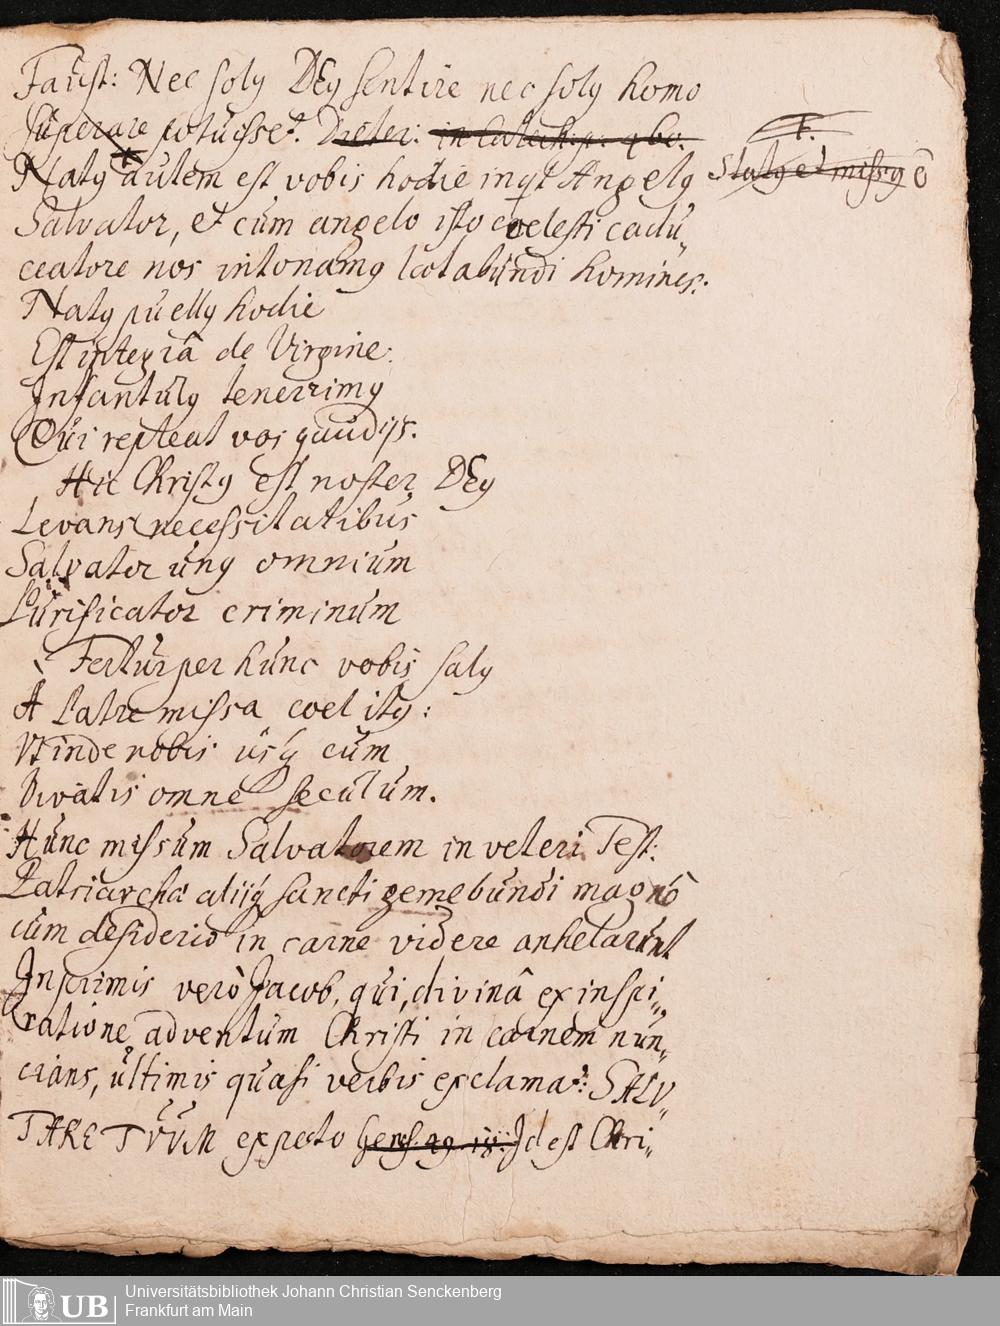 Faust: Nec solꝰ DEꝰ sentire nec solꝰ homo
superare potuisset. Dieter: in Catech: p: 460.
Natꝰ autem est vobis hodie inqt Angelꝰ
F.
Statꝰ et missꝰ ē
Salvator, et cùm angelo isto coelesti cadu„
ceatore nos intonamꝰ laetabundi homines:
Natꝰ puellꝰ hodie
Est integrâ de Virgine:
Infantulꝰ tenerrimꝰ
Qui repleat vos gaudijs.
Hic Christꝰ est noster DEꝰ
Levans necessitatibus
Salvator unꝰ omnium
Purificator criminum
Fertur per hunc vobis salꝰ
A Patre missa coelitꝰ:
Vt inde nobis usq cum
Vivatis omne seculum.
Hunc missum Salvatorem in veteri Test:
Patriarcha aliiq sancti gemebundi magnò
cum desiderio in carne videre anhelarunt
Inprimis verò Jacob, qui, divinâ ex inspi„
ratione adventum Christi in carnem nun„
cians, ultimis quasi verbis exclamat: SALV„
TARE TVVM expecto Gens. 49. 18. Id est Chri„
Universitätsbibliothek Johann Christian Senckenberg
Frankfurt am Main
UB